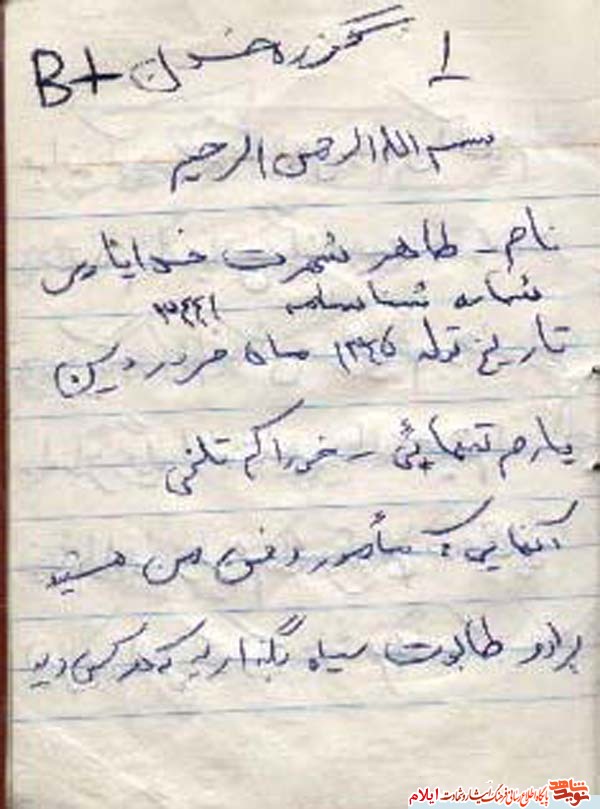 ۱ گروه خون B+
بسم الله الرحمن الرحیم
نام - طاهر شهرت
شماره شناسنامه ۳۴۴۱
تاریخ تولد ۱۳۴۵ ماه فروردین
یارم تنهائی - خوراکم تلخی
آنهایی که مأمور دفن من هستید
برادر طابوت سیاه بگذارید که هر کس دید
نوید شاهد
پایگاه اطلاع رسانی فرهنگ ایثار و شهادت ایلام